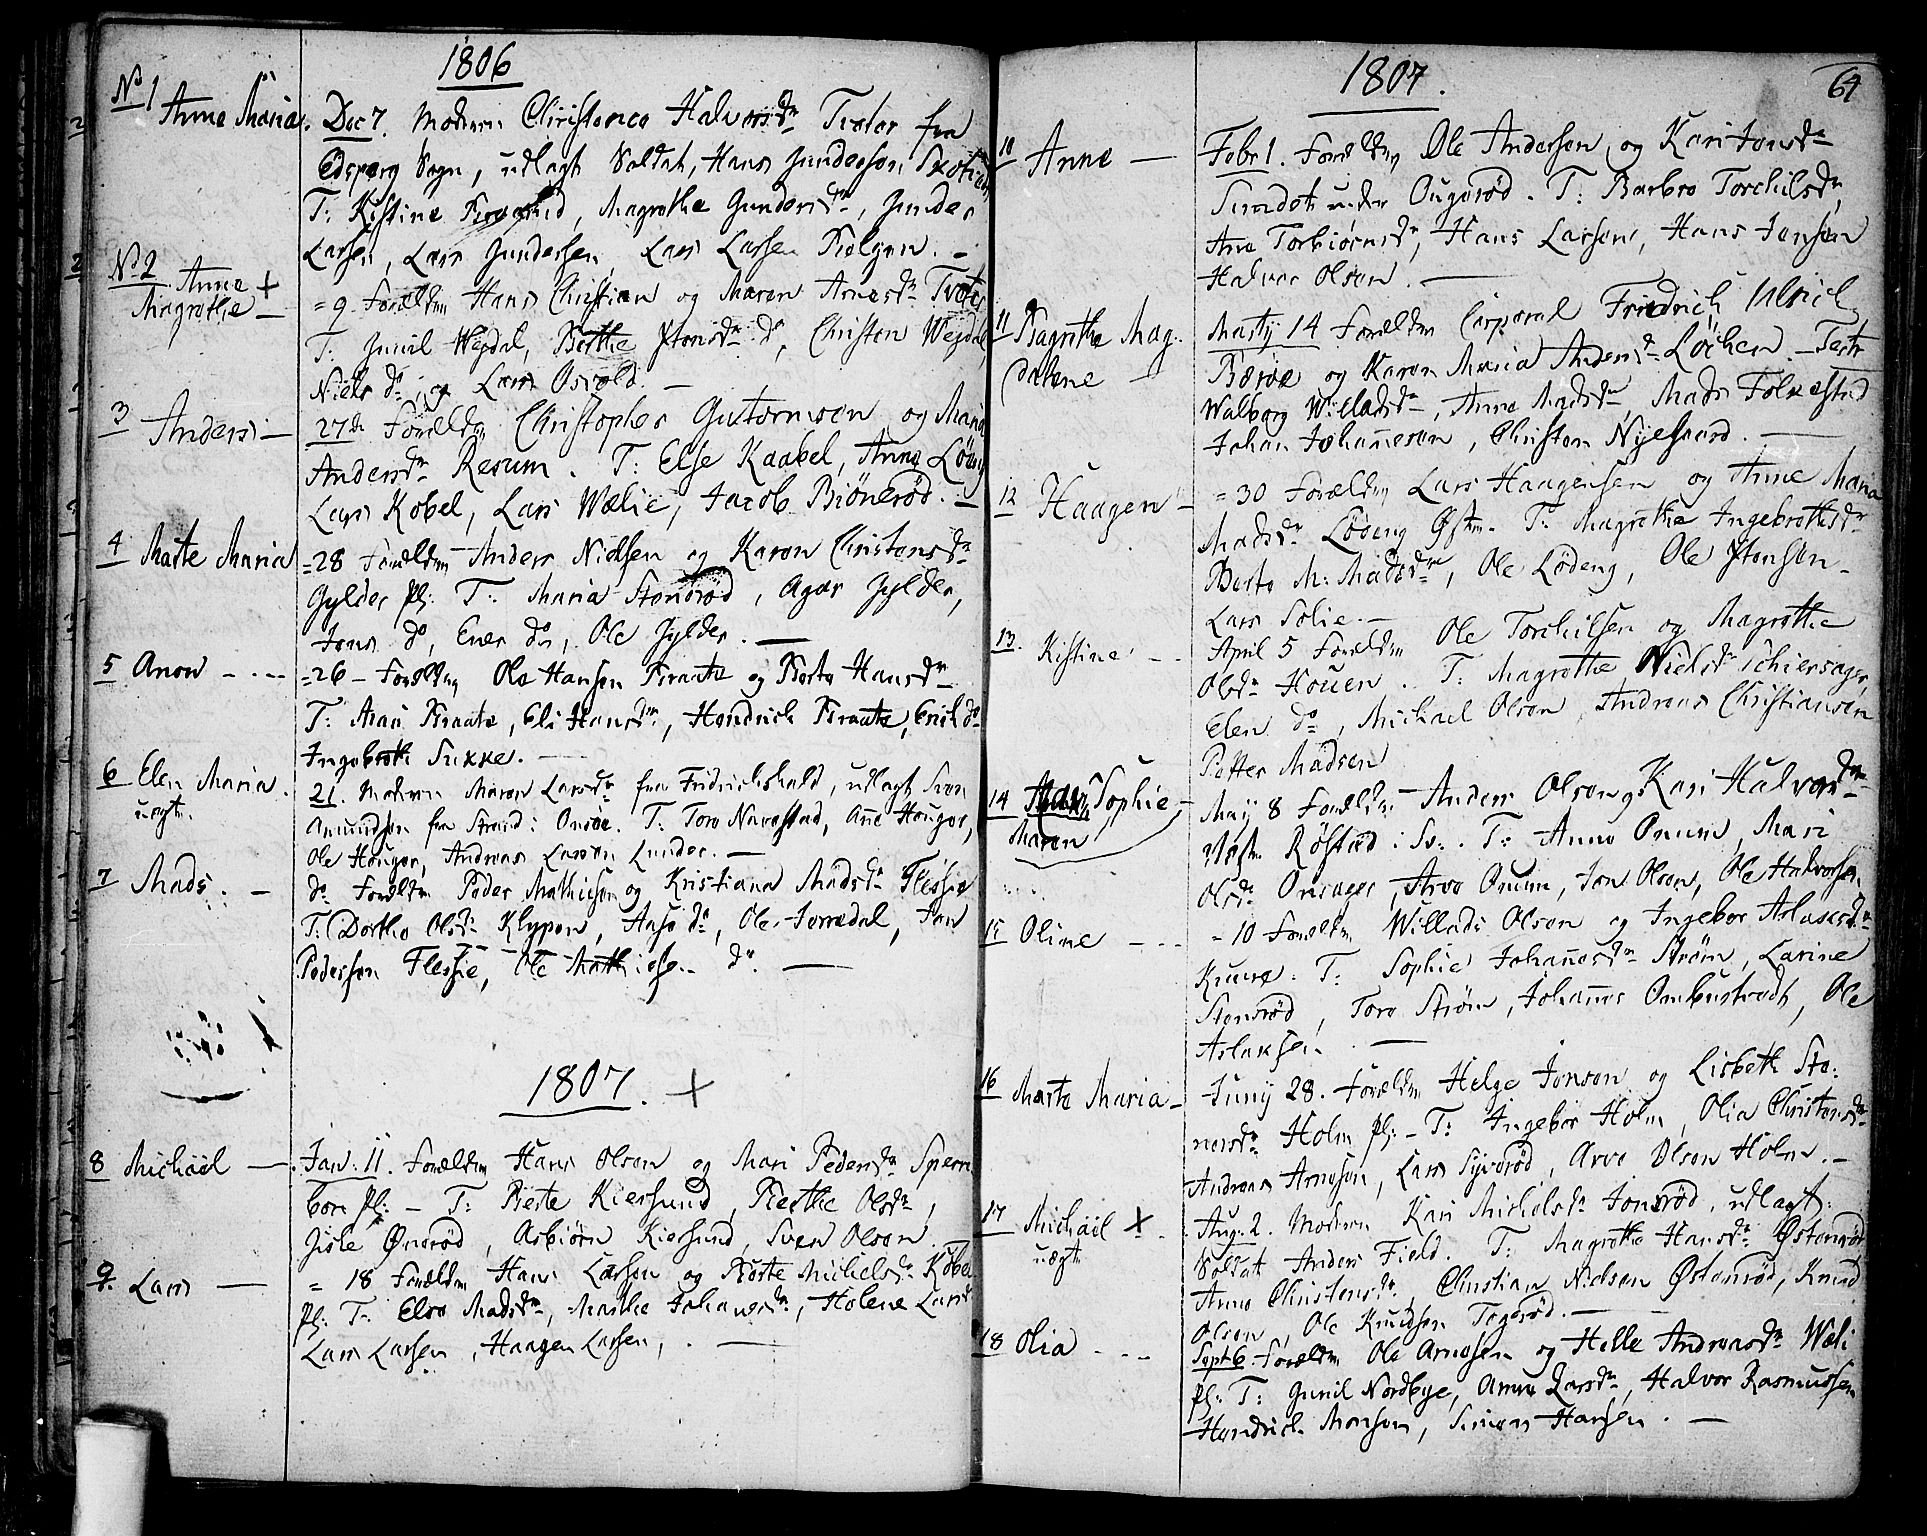 1806
No 1 Anne Maria. Dec 7. Moderen Christence Halvorsdr Tveter fra
Edsberg Sogn, udlagt Soldat, Hans Gundersen
T: Kistine, Magrethe Gundersdr, Gunder
Larsen, Lars Gundersen, Lars Larsen Kiølgen. -
No 2 Anne +
Magrethe - = 9 Forældrene Hans Christian og Maren Arnesdr Tveter
T: Gunil Wegdal, Berthe Stensdr do, Christen Wegdal
Niels do, og Lars Osvold. -
3 Anders - 27de Forældrn Christopher Gutormsen og Maria
Andersdr Resum. T: Else Kaabel, Anne Lödeng
Lars Kobel, Lars Wælie, Jacob Biönerød. -
4 Marte Maria = 28 Forældrn Anders Nielsen og Karen Christensdr
Gylder pl: T: Maria Stensrød, Agar Gylder,
Jens do, Ener do, Ole Gylder. -
5 Anew - . - = 26 - Forældrn Ole Hansen Kraate og Berte Hansdr
T: Mari Kraate, Eli Hansdr, Hendrich Kraate, Erich do
Ingebreth Sikke. -
6 Elen Maria.
uægt. 21. Moderen Maren Larsdr fra Fridrichshald, udlagt Sven
Amundsen fra Strand i Onsöe. T: Tore Navestad, Ane Houger,
Ole Houger, Andreas Larsen Lunder. -
7 Mads. - do Forældrn Peder Mathiesen og Kristiana Madsdr Flessie
T: Dorthe Olsdr Klypen, Aase do, Ole Jerredal, Jan
Pedersen Flessie, Ole Mathiese. do. -
1807. +
8 Michäel - Jan: 11. Forældrn Hans Olsen og Mari Pedersdr Spern
boen pl: - T: Berte Kiersund, Berthe Olsdr,
Gisle Önerød, Asbiörn Kiersund, Sven Olsen.
9. Lars - = 18 Forældrn Hans Larsen og Berte Michelsdr Kobel
pl: T: Else Madsdr, Marthe Johanesdr, Helene Larsd
Lars Larsen, Haagen Larsen, . -
1807.
64
10 Anne - Febr 1. Forældrn Ole Andersen og Kari Jensdr
Sundet under Ougerød. T: Barbro Torchilsdr,
Ane Torbiörnsdr, Hans Larsen, Hans Jensen
Halvor Olsen. -
11 Bagrethe Mag-
dalene - Martij 14 Forældrn Corporal Friedrich Ulrich
Beröe og Karen Maria Andersdr Löcken. - Testr
Walborg Willadsdr, Anne Madsdr, Mads Folkestad
Johan Johannesen, Christen Nyegaard. -
12 Haagen - = 30 Forældrn Lars Haagensen og Anne Maria
Madsdr Lödeng Østre. T: Magrethe Ingebrethsdr
Berte M: Madsdr, Ole Lödeng, Ole Stensen
Lars Solie. -
13. Kistine - - April 5 Forældrn Ole Torchilsen og Magrethe
Olsdr Houen. T: Magrethe Nielsdr Schiersager
Elen do, Michael Olsen, Andreas Christiansen
Petter Madsen
14 Sophie -
Maren May 8 Forældrn Anders Olsen og Kari Halvorsdr
Röstad i Sv: T: Anne Onum, Mari
Olsdr Onsager, Arve Onum, Jon Olsen, Ole Halvorsen.
15 Oline - - - = 10 Forældrn Willads Olsen og Ingebor Aslaksdr
Kruuse. T: Sophie Johannesdr Ström, Larine
Stensrød, Tore Ström, Johannes Ombustvedt, Ole
Aslaksen. -
16 Marte Maria - Juny 28. Forældrn Helge Jensen og Lisbeth Ste-
nersdr Holm pl: - T: Ingebor Holm, Olia Christensdr
Andreas Arnesen, Lars Syverød, Arve Olsen Holm. -
17 Michäel +.
uægt Aug. 2. Moderen Kari Michelsdr Jonsrød, udlagt
Soldat Anders Field. T: Magrethe Hansdr Østenrød
Anne Christensdr, Christian Nielsen Østenrød, Knud
Olsen, Ole Knudsen Togerød. -
18 Olia - - - Sept 6. Forældrn Ole Arnesen og Helle Andreasdr Wæli
pl: T: Gunil Nordbye, Anne Larsdr, Halvor Rasmussen
Hendrich Monsen, Simon Hansen. -